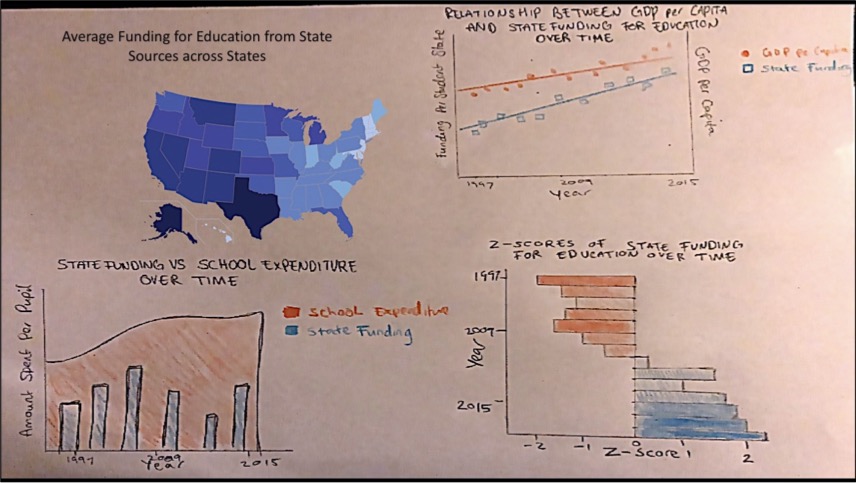 Average Funding for Education from State
Sources across States
RELATIONSHIP BETWEEN GDP per CAPITA
AND STATE FUNDING FOR EDUCATION
OVER TIME
Funding Per Student State
GDP per Capita
GDP per Capita
State Funding
1997
2009
2015
Year
STATE FUNDING VS SCHOOL EXPENDITURE
OVER TIME
Amount Spent Per Pupil
School Expenditure
State Funding
1997
2009
2015
Year
Z-SCORES OF STATE FUNDING
FOR EDUCATION OVER TIME
1997
2009
2015
Year
-2
-1
0
1
2
Z-Score